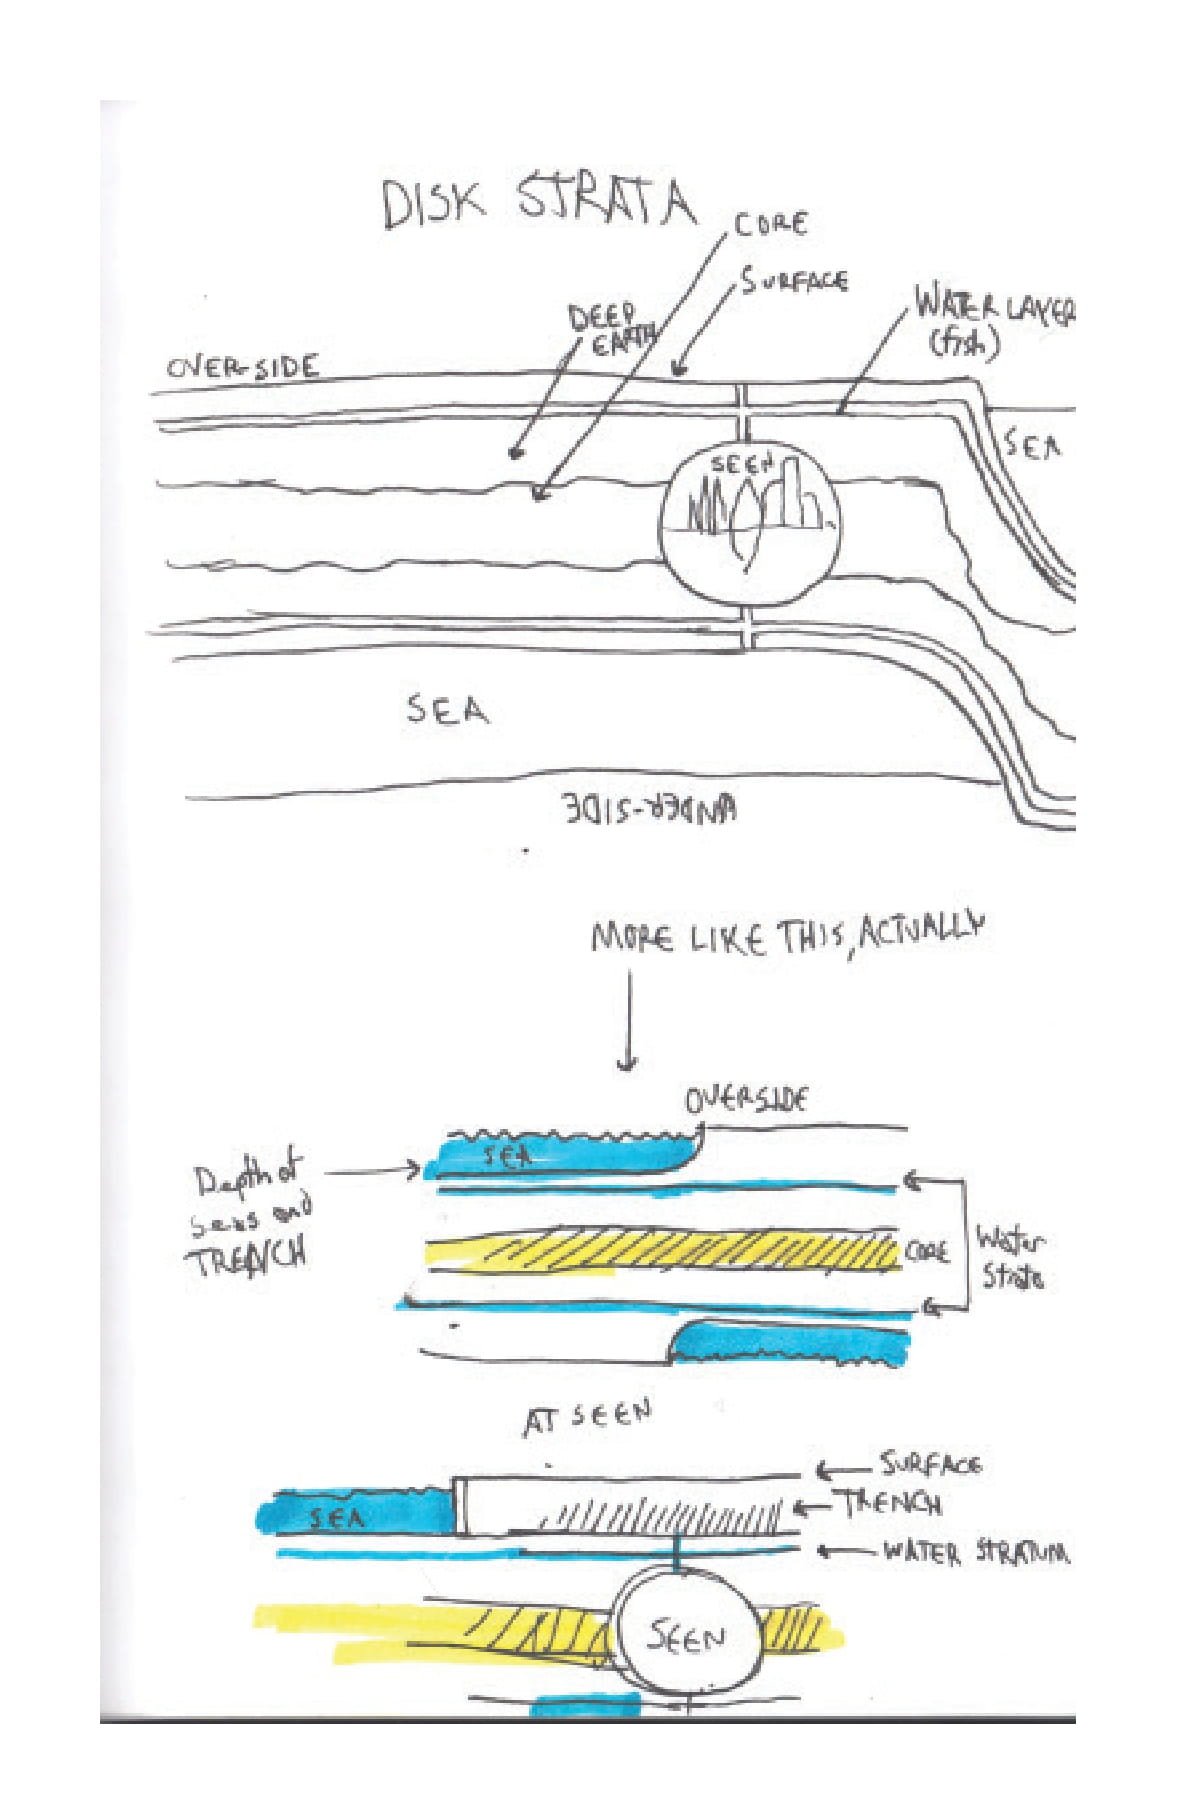 DISK STRATA
CORE
SURFACE
DEEP
EARTH
WATER LAYER
(fish)
OVER-SIDE
SEA
SEEN
SEA
UNDER-SIDE
MORE LIKE THIS, ACTUALLY
OVERSIDE
SEA
Depth of
seas and
TRENCH
CORE
Water
Strata
AT SEEN
SURFACE
TRENCH
SEA
WATER STRATUM
SEEN